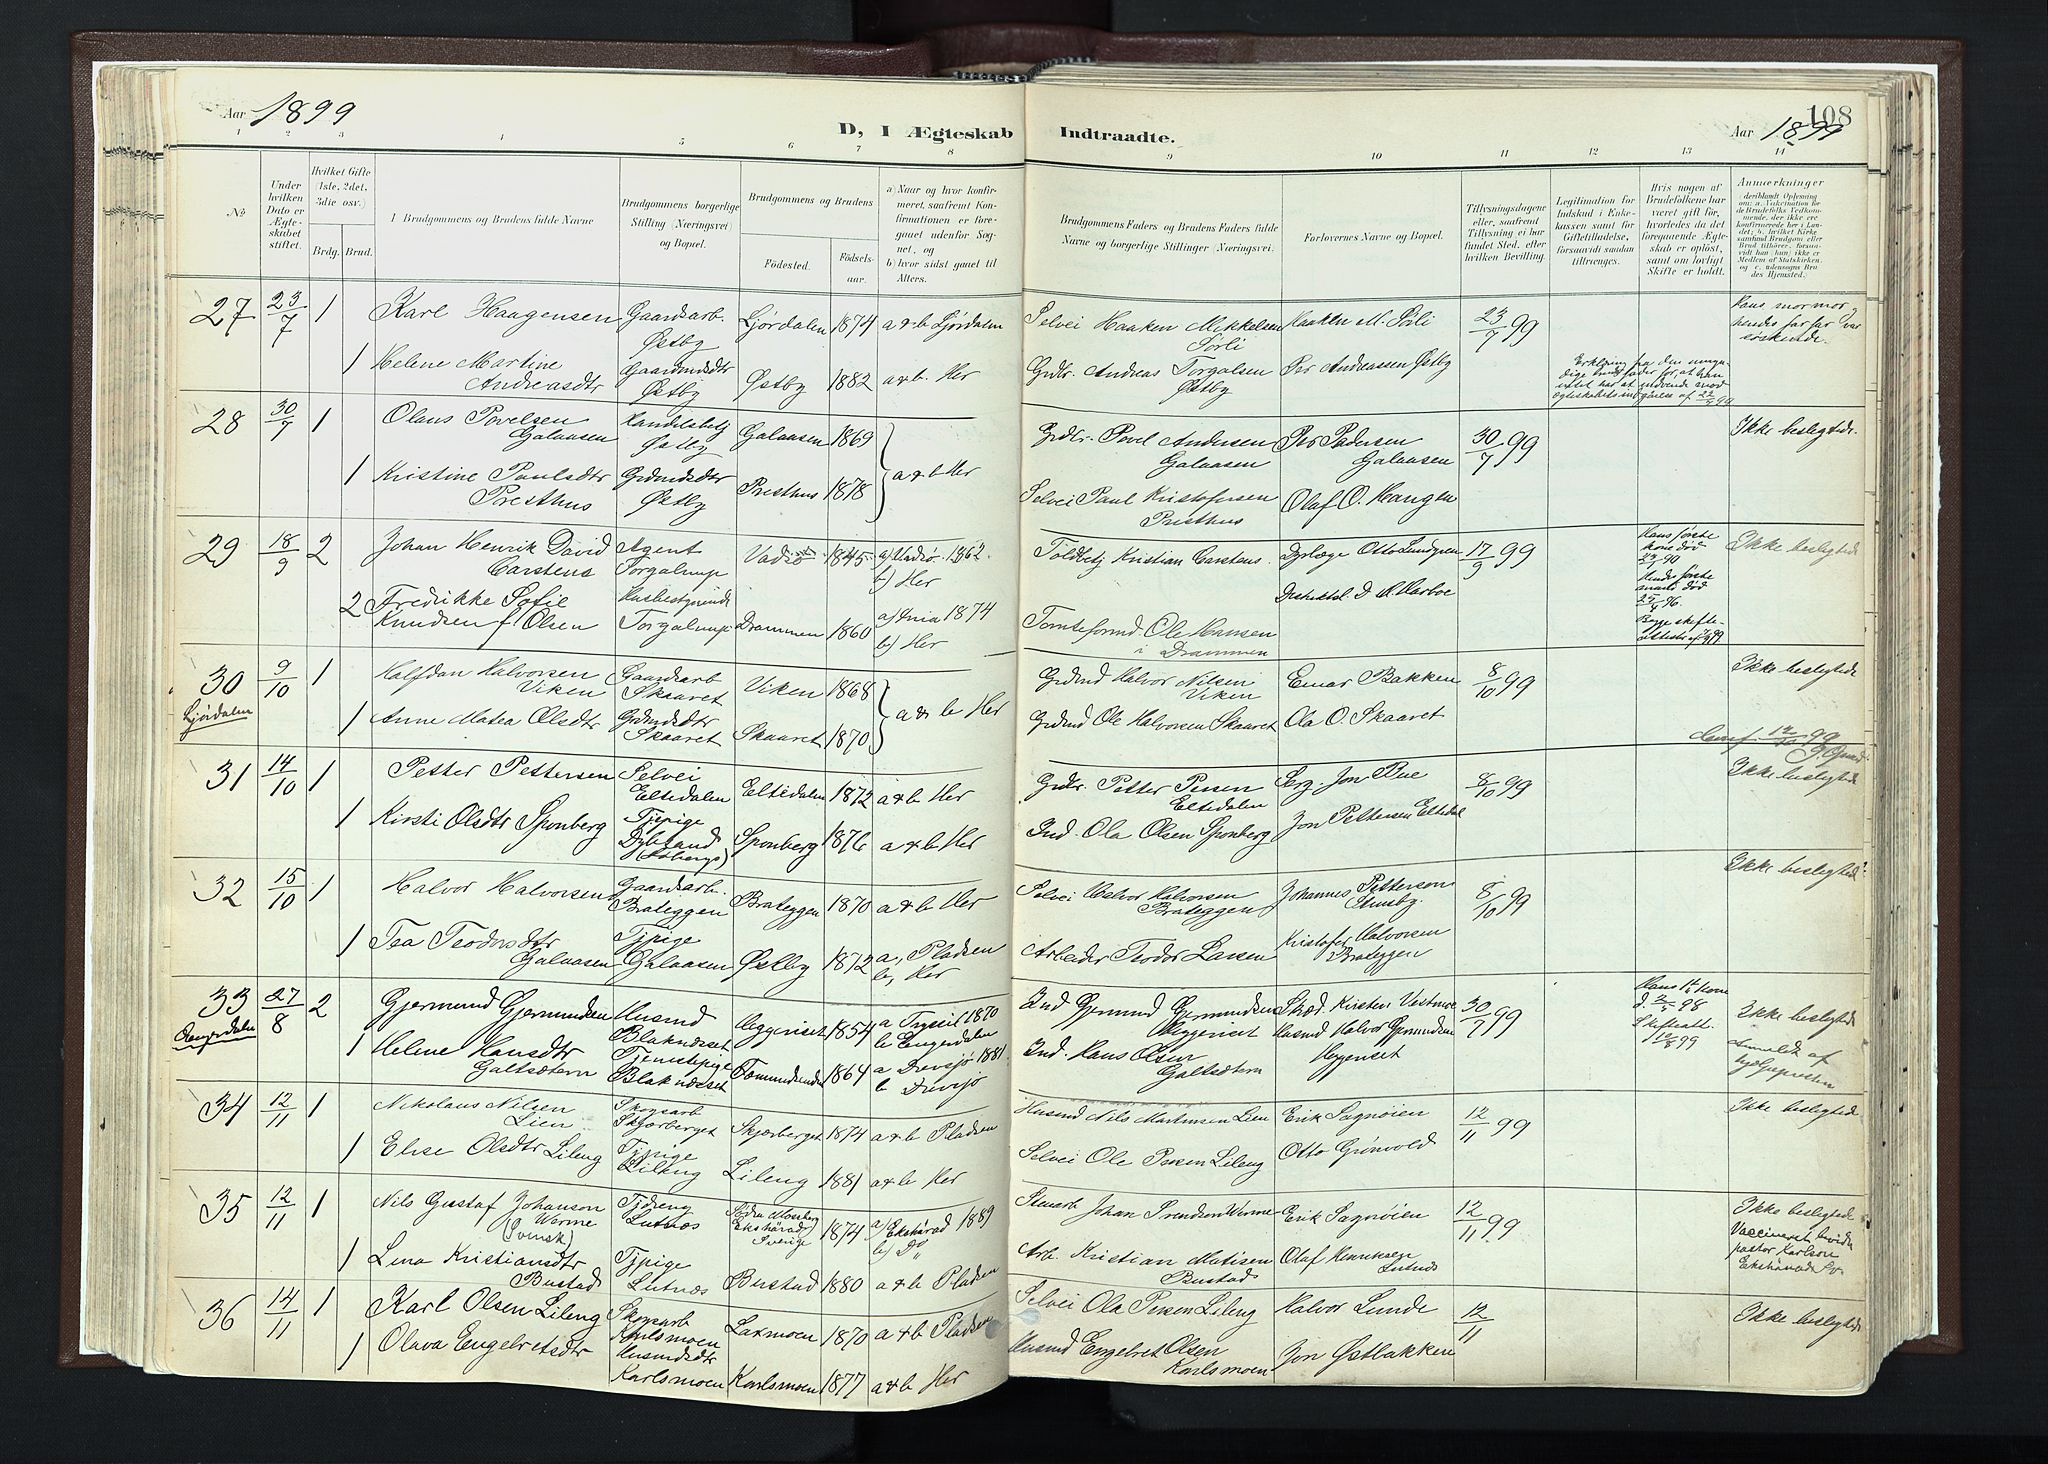 Aar 1899
D, I Ægteskab Indtraadte.
Aar 1899
108
1 2 3 4 5 6 7 8 9 10 11 12 13 14
No
Under hvilken Dato er Ægteskabet stiftet.
Hvilket Gifte (1ste, 2det, 3die osv.)
Brdg. Brud.
I Brudgommens og Brudens fulde Navne
Brudgommens borgerlige Stilling (Næringsvei) og Bopæl.
Brudgommens og Brudens
Fødested.
Fødselsaar.
a) Naar og hvor konfirmeret, saafremt Konfirmationen er foregaaet udenfor Sognet, og
b) hvor sidst gaaet til Alters.
Brudgommens Faders og Brudens Faders fulde Navne og borgerlige Stillinger (Næringsvei.
Forlovernes Navne og Bopæl.
Tillysningsdagene eller, saafremt Tillysning ei har fundet Sted, efter hvilken Bevilling.
Legitimation for Indskud i Enkekassen samt for Giftetilladelse, forsaavidt saadan tiltrænges.
Hvis nogen af Brudefolkene har været gift før, hvorledes da det foregaaende Ægteskab er opløst, samt om lovligt Skifte er holdt.
Anmærkninger
27 23/7 1 Karl Haagensen Gaardsarb. Østby Ljørdalen 1874 a & b Ljørdalen
Selvei Haaken Mikkelsen Sørli Haaken M. Sørli 23/7 99 hans mormor, hendes farfar var søskende.
1 Helene Martine Andreasdtr Gaardmdsdtr Østby Østby 1882 a & b. Her
Grdbr. Andreas Torgalsen Østby Per Andreassen Østby
28 30/7 1 Olaus Povelsen Galaasen Handelsbetj Østby Galaasen 1869
Grdbr. Povel Andersen Galaasen Per Pedersen Galaasen 30/7 99 Ikke beslegtede.
1 Kristine Paulsdtr Presthus Grdmdsdtr Østby Presthus 1878 a & b Her
Selvei Paul Kristofersen Presthus Olaf O. Haugen
29 18/9 2 Johan Henrik David Carstens Agent Vadsø 1845 a) Vadsø 1862. b) Her
Toldbetj Kristian Carstens. Dyrlæge Otto Lundgren 17/9 99 Hans første kone død Ikke beslegtede
2 Fredrikke Sofie Knudsen f Olsen Husbestyrinde Drammen 1860 b) Her
Hendes første mand død
Ole Hansen i Drammen
30 Ljørdalen 9/10 1 Halfdan Halvorsen Viken Gaardsarb Skaaret Viken 1868
Grdmd Halvor Nilsen Viken Einar Bakken 8/10 99 Ikke beslegtede
1 Anne Matea Olsdtr Grdmdsdtr Skaaret Skaaret 1870 a & b Her
Grdmd Ole Halvorsen Skaaret Ola O. Skaaret
31 14/10 1 Petter Pettersen Selvei Eltedalen Eltedalen 1872 a & b Her
Grdbr. Petter Persen Eltedalen Serg. Jon Bue 8/10 99 Ikke beslegtede
1 Kirsti Olsdtr Sponberg Tjpige Sponberg 1876 a & b Her
Ind. Ola Olsen Sponberg Jon Pettersen Eltedal
32 15/10 1 Halvor Halvorsen Gaardsarb. Brateggen Brateggen 1870 a & b Her
Selvei Halvor Halvorsen Brateggen Johannes Petterson 8/10 99 Ikke beslegtede
1 Tea Teodorsdtr Galaasen Tjpige Galaasen Østby 1872 a, Pladsen b, Her
Arbeider Teodor Larsen Kristofer Halvorsen Brateggen
33 Engerdalen 27/8 2 Gjermund Gjermundsen Husmd Heggeriset 1854 a Trysil 1870 b Engerdalen
Ind Gjermund Gjermundsen Heggeriset Skræd. Kirsten Vestmoe 30/7 99 Ikke beslegtede
1 Helene Hansdtr Galtsætern Tjenestepige 1864 a Drevsjø 1881. b Drevsjø
Ind. Hans Olsen Galtsætern Husmd Halvor Gjermundsen Heggeriset
34 12/11 1 Nikolaus Nilsen Lien Skogsarb Skjærberget Skjærberget 1874 a & b Pladsen
Husmd Nils Martinsen Lien Erik Sagnøien 12/11 99 Ikke beslegtede
1 Elise Olsdtr Lileng Tjpige Lileng Lileng 1881 a & b Her
Selvei Ole Persen Lileng Otto Grønvold
35 12/11 1 Nils Gustaf Johanson Werme (svensk) Lutnæs Ekshärad Sverige 1874 a) Ekshärad 1889 b) Do
Johan Werme Erik Sagnøien 12/11 99 Ikke beslegtede
1 Lina Kristiansdtr Bustad Tjpige Lutnæs Bustad 1880 a & b Pladsen
Arb. Kristian Matisen Bustad Olaf Henriksen Lutnæs
36 14/11 1 Karl Olsen Lileng Skogsarb Karlsmoen Laxmoen 1870 a & b Pladsen
Selvei Ola Persen Lileng Halvor Lunde 12/11 Ikke beslegtede
1 Olava Engelretsdtr Husmdsdtr Karlsmoen Karlsmoen 1877 a & b Her
Husmd Engelret Olsen Karlsmoen Jon Østbakken